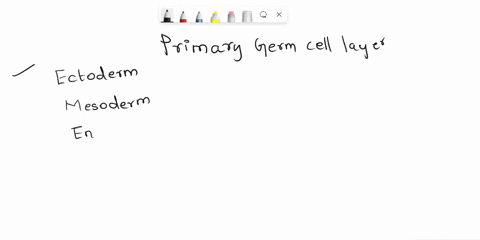 Primary Germ cell layer
Ectoderm
Mesoderm
En